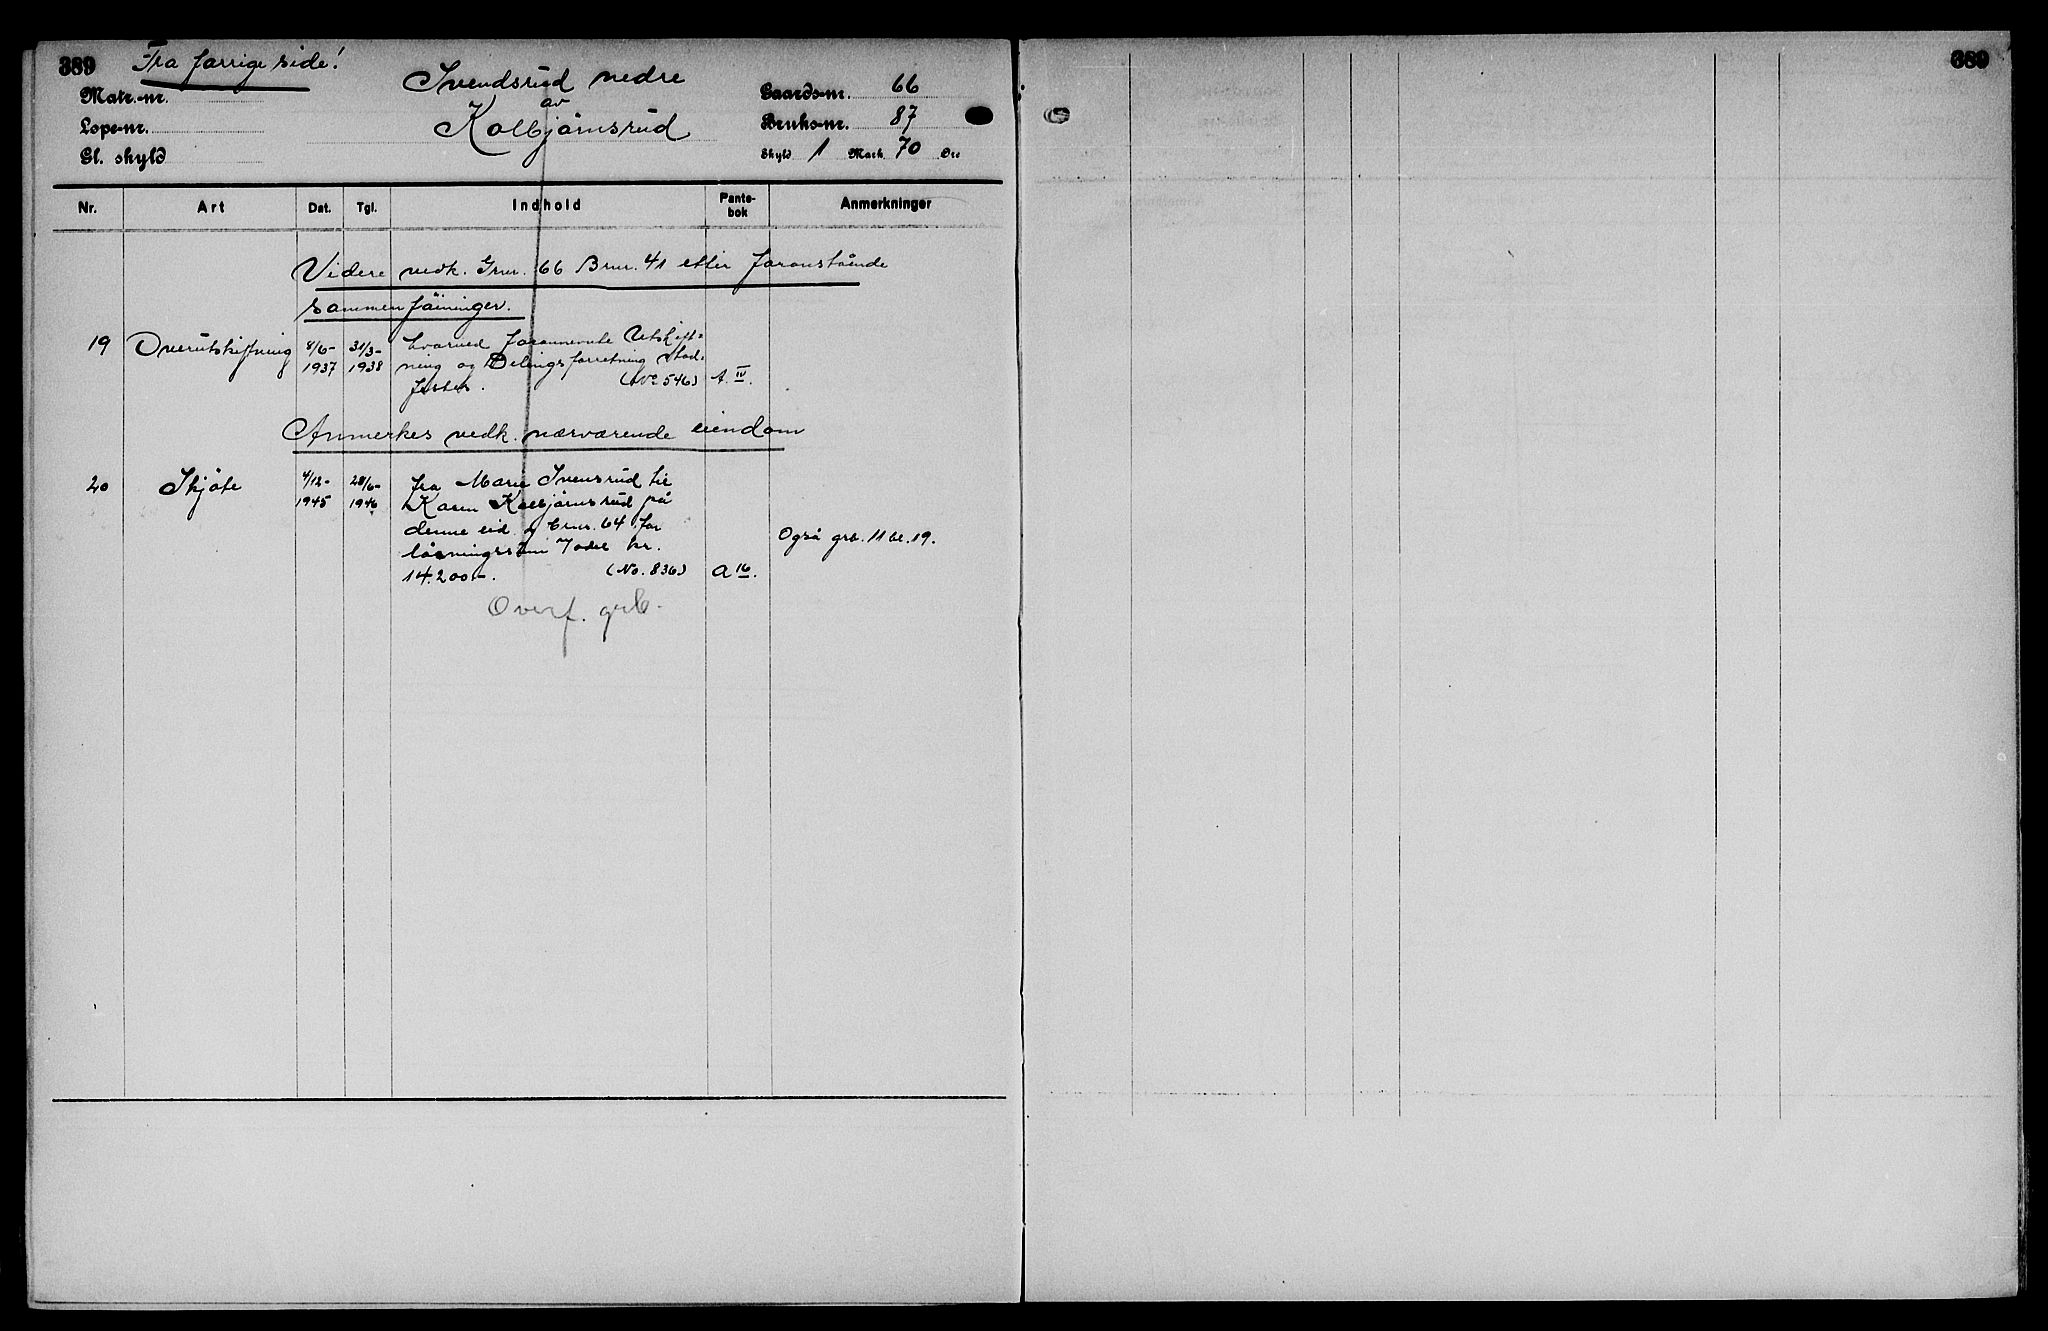 389
Fra forrige side!
Matr.-nr.
Lope-nr.
Gl. skyld
Svendsrud nedre
av
Kolbjørnsrud
Gaards-nr. 66
Bruks-nr. 87
Skyld 1 Mark 70 Øre
389
Nr. Art Dat. Tgl. Indhold Pante-bok Anmerkninger
Videre vedk. Gnr. 66 Bnr. 41 etter foranstående
sammenføininger.
19 Overutskiftning 8/6- 1937 31/3- 1938 hvorved forannevnte Utskift-
ning og Delingsforretning stad-
festes. (No 546) A. IV.
Anmerkes vedk. nærværende eiendom
20 Skjøte 4/12- 1945 28/6- 1946 fra Marie Svensrud til
Karen Kolbjørnsrud på
denne eid. og bnr. 64 for
løsningssum odel kr.
14.200.-. (No. 836) A 16.
Også grb. 11 bl. 19.
Overf. grb.